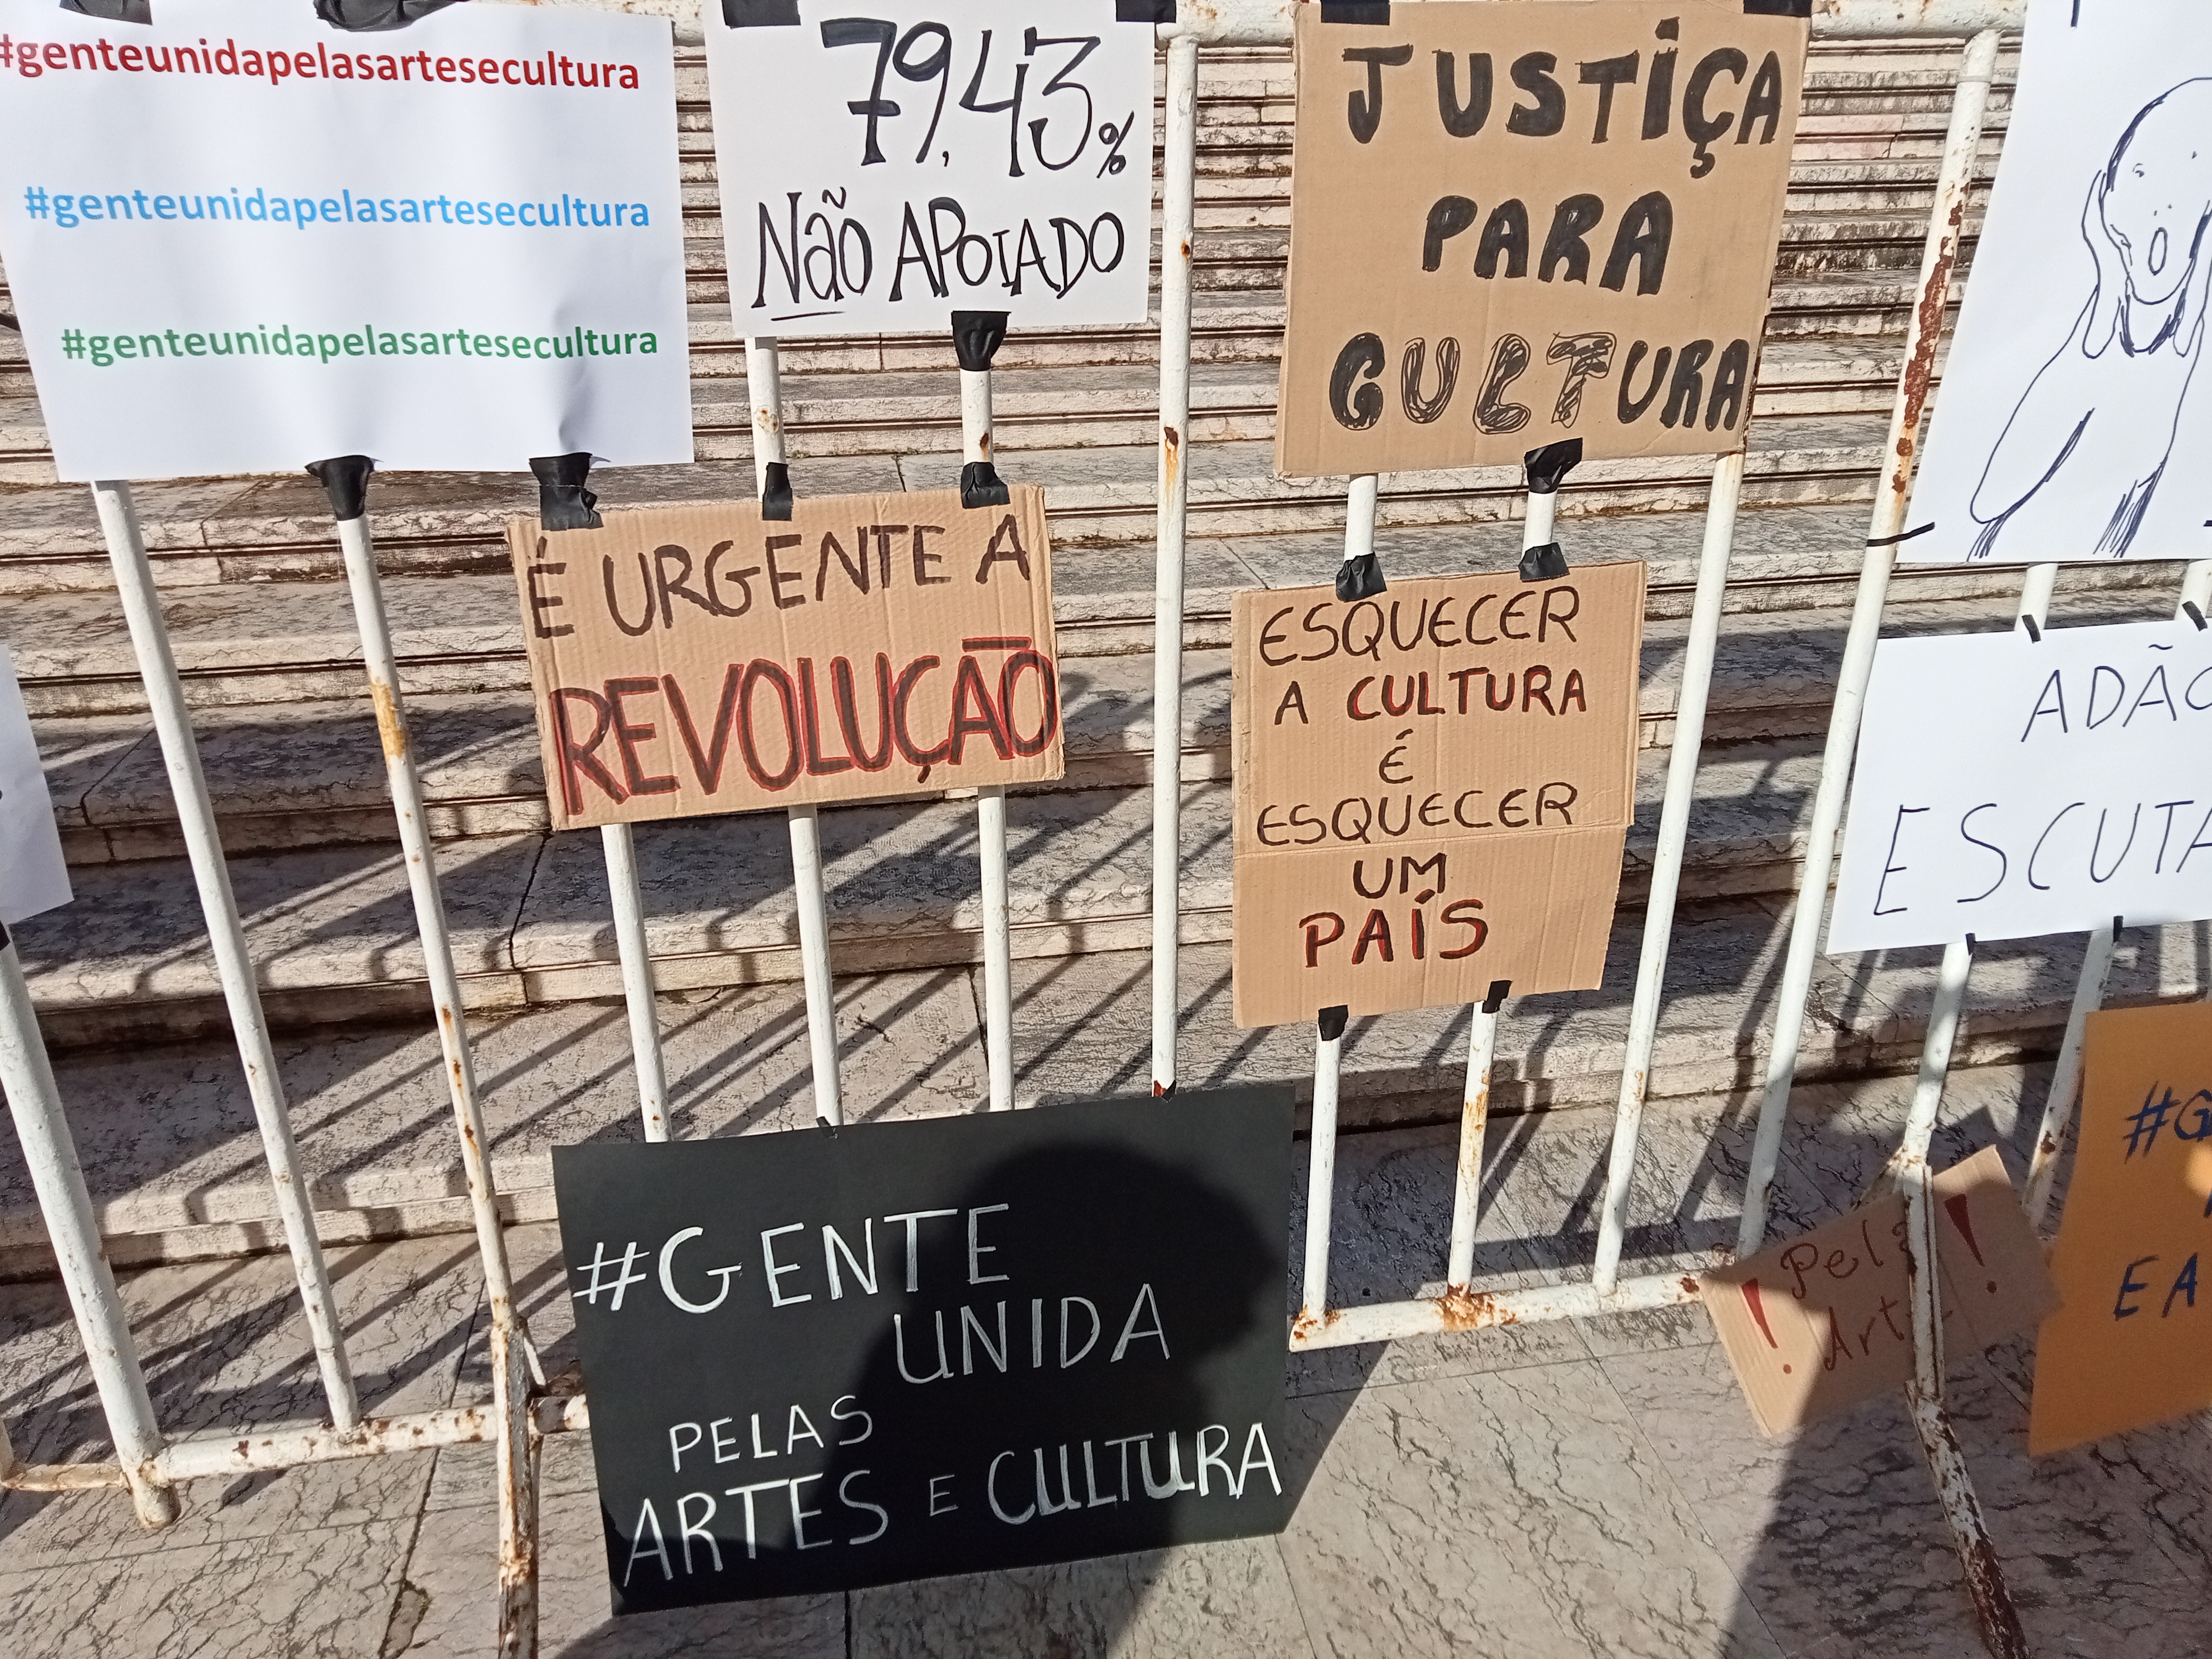 #genteunidapelasartesecultura
#genteunidapelasartesecultura
#genteunidapelasartesecultura
79,43%
Não APOIADO
JUSTIÇA
PARA
CULTURA
É URGENTE A
REVOLUÇÃO
ESQUECER
A CULTURA
É
ESQUECER
UM
PAÍS
#GENTE
UNIDA
PELAS
ARTES E CULTURA
! Pela !